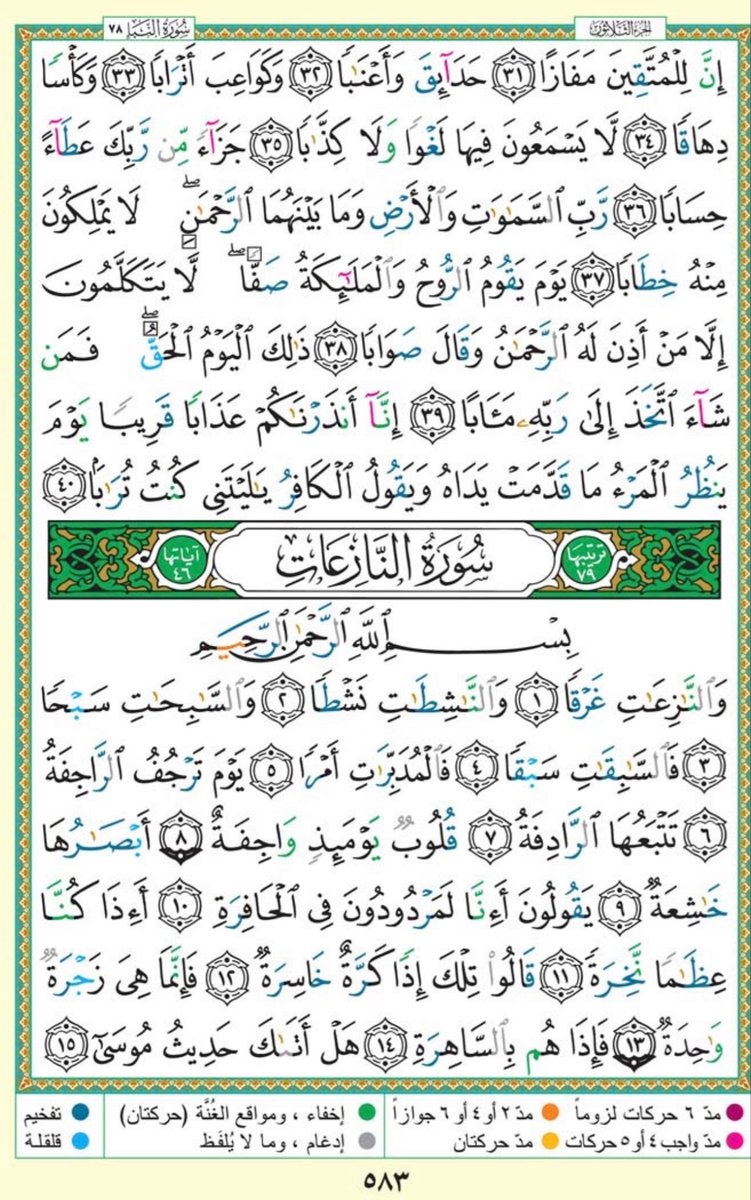 الجُزءُ الثَّلَاثُونَ
سُورَةُ النَّبَإِ ٧٨
إِنَّ لِلْمُتَّقِينَ مَفَازًا ٣١ حَدَآئِقَ وَأَعْنَٰبًا ٣٢ وَكَوَاعِبَ أَتْرَابًا ٣٣ وَكَأْسًا
دِهَاقًا ٣٤ لَّا يَسْمَعُونَ فِيهَا لَغْوًا وَلَا كِذَّٰبًا ٣٥ جَزَآءً مِّن رَّبِّكَ عَطَآءً
حِسَابًا ٣٦ رَّبِّ ٱلسَّمَٰوَٰتِ وَٱلْأَرْضِ وَمَا بَيْنَهُمَا ٱلرَّحْمَٰنِ ۖ لَا يَمْلِكُونَ
مِنْهُ خِطَابًا ٣٧ يَوْمَ يَقُومُ ٱلرُّوحُ وَٱلْمَلَٰٓئِكَةُ صَفًّا ۖ لَّا يَتَكَلَّمُونَ
إِلَّا مَنْ أَذِنَ لَهُ ٱلرَّحْمَٰنُ وَقَالَ صَوَابًا ٣٨ ذَٰلِكَ ٱلْيَوْمُ ٱلْحَقُّ ۖ فَمَن
شَآءَ ٱتَّخَذَ إِلَىٰ رَبِّهِۦ مَـَٔابًا ٣٩ إِنَّآ أَنذَرْنَٰكُمْ عَذَابًا قَرِيبًا يَوْمَ
يَنظُرُ ٱلْمَرْءُ مَا قَدَّمَتْ يَدَاهُ وَيَقُولُ ٱلْكَافِرُ يَٰلَيْتَنِى كُنتُ تُرَٰبًۢا ٤٠
ترتيبها ٧٩
سُورَةُ النَّازِعَاتِ
آياتها ٤٦
بِسْمِ ٱللَّهِ ٱلرَّحْمَٰنِ ٱلرَّحِيمِ
وَٱلنَّٰزِعَٰتِ غَرْقًا ١ وَٱلنَّٰشِطَٰتِ نَشْطًا ٢ وَٱلسَّٰبِحَٰتِ سَبْحًا
٣ فَٱلسَّٰبِقَٰتِ سَبْقًا ٤ فَٱلْمُدَبِّرَٰتِ أَمْرًا ٥ يَوْمَ تَرْجُفُ ٱلرَّاجِفَةُ
٦ تَتْبَعُهَا ٱلرَّادِفَةُ ٧ قُلُوبٌ يَوْمَئِذٍ وَاجِفَةٌ ٨ أَبْصَٰرُهَا
خَٰشِعَةٌ ٩ يَقُولُونَ أَءِنَّا لَمَرْدُودُونَ فِى ٱلْحَافِرَةِ ١٠ أَءِذَا كُنَّا
عِظَٰمًا نَّخِرَةً ١١ قَالُوا۟ تِلْكَ إِذًا كَرَّةٌ خَاسِرَةٌ ١٢ فَإِنَّمَا هِىَ زَجْرَةٌ
وَٰحِدَةٌ ١٣ فَإِذَا هُم بِٱلسَّاهِرَةِ ١٤ هَلْ أَتَىٰكَ حَدِيثُ مُوسَىٰٓ ١٥
مدّ ٦ حركات لزوماً
مدّ ٢ أو ٤ أو ٦ جوازاً
إخفاء ، ومواقع الغُنَّة (حركتان)
تفخيم
مدّ واجب ٤ أو ٥ حركات
مدّ حركتان
إدغام ، وما لا يُلفَظ
قلقلة
٥٨٣